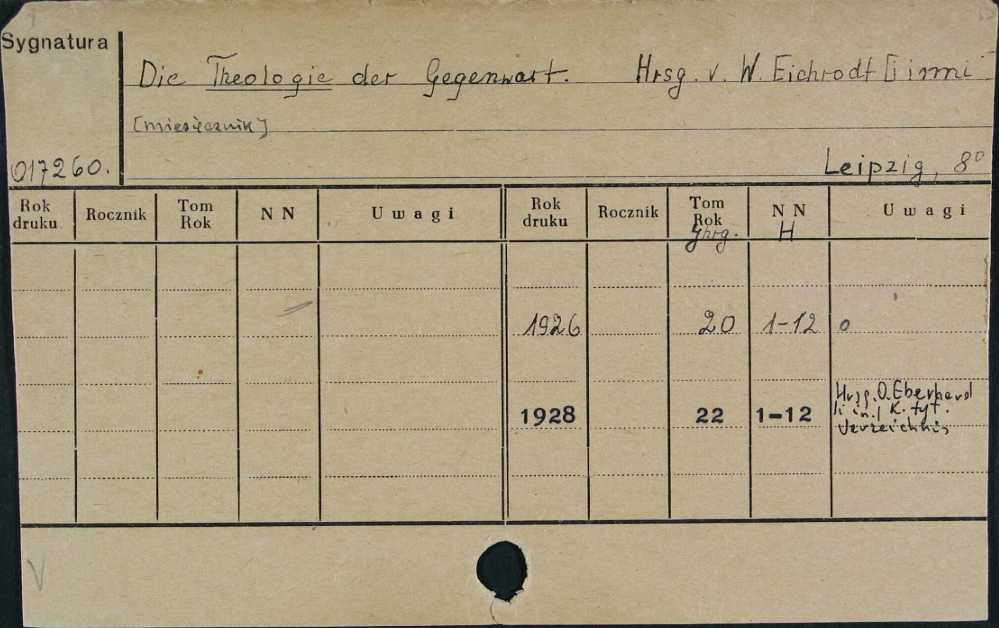 Sygnatura
Die Theologie der Gegenwart. Hrsg. v. W. Eichrodt [i inni
[miesięcznik]
017260.
Leipzig, 8°
Rok druku Rocznik Tom Rok NN Uwagi Rok druku Rocznik Tom Rok NN Uwagi
Jhrg. H
1926 20 1-12 o
1928 22 1-12 Hrsg. O. Eberhard
[i in.] K. tyt.
Verzeichnis
V